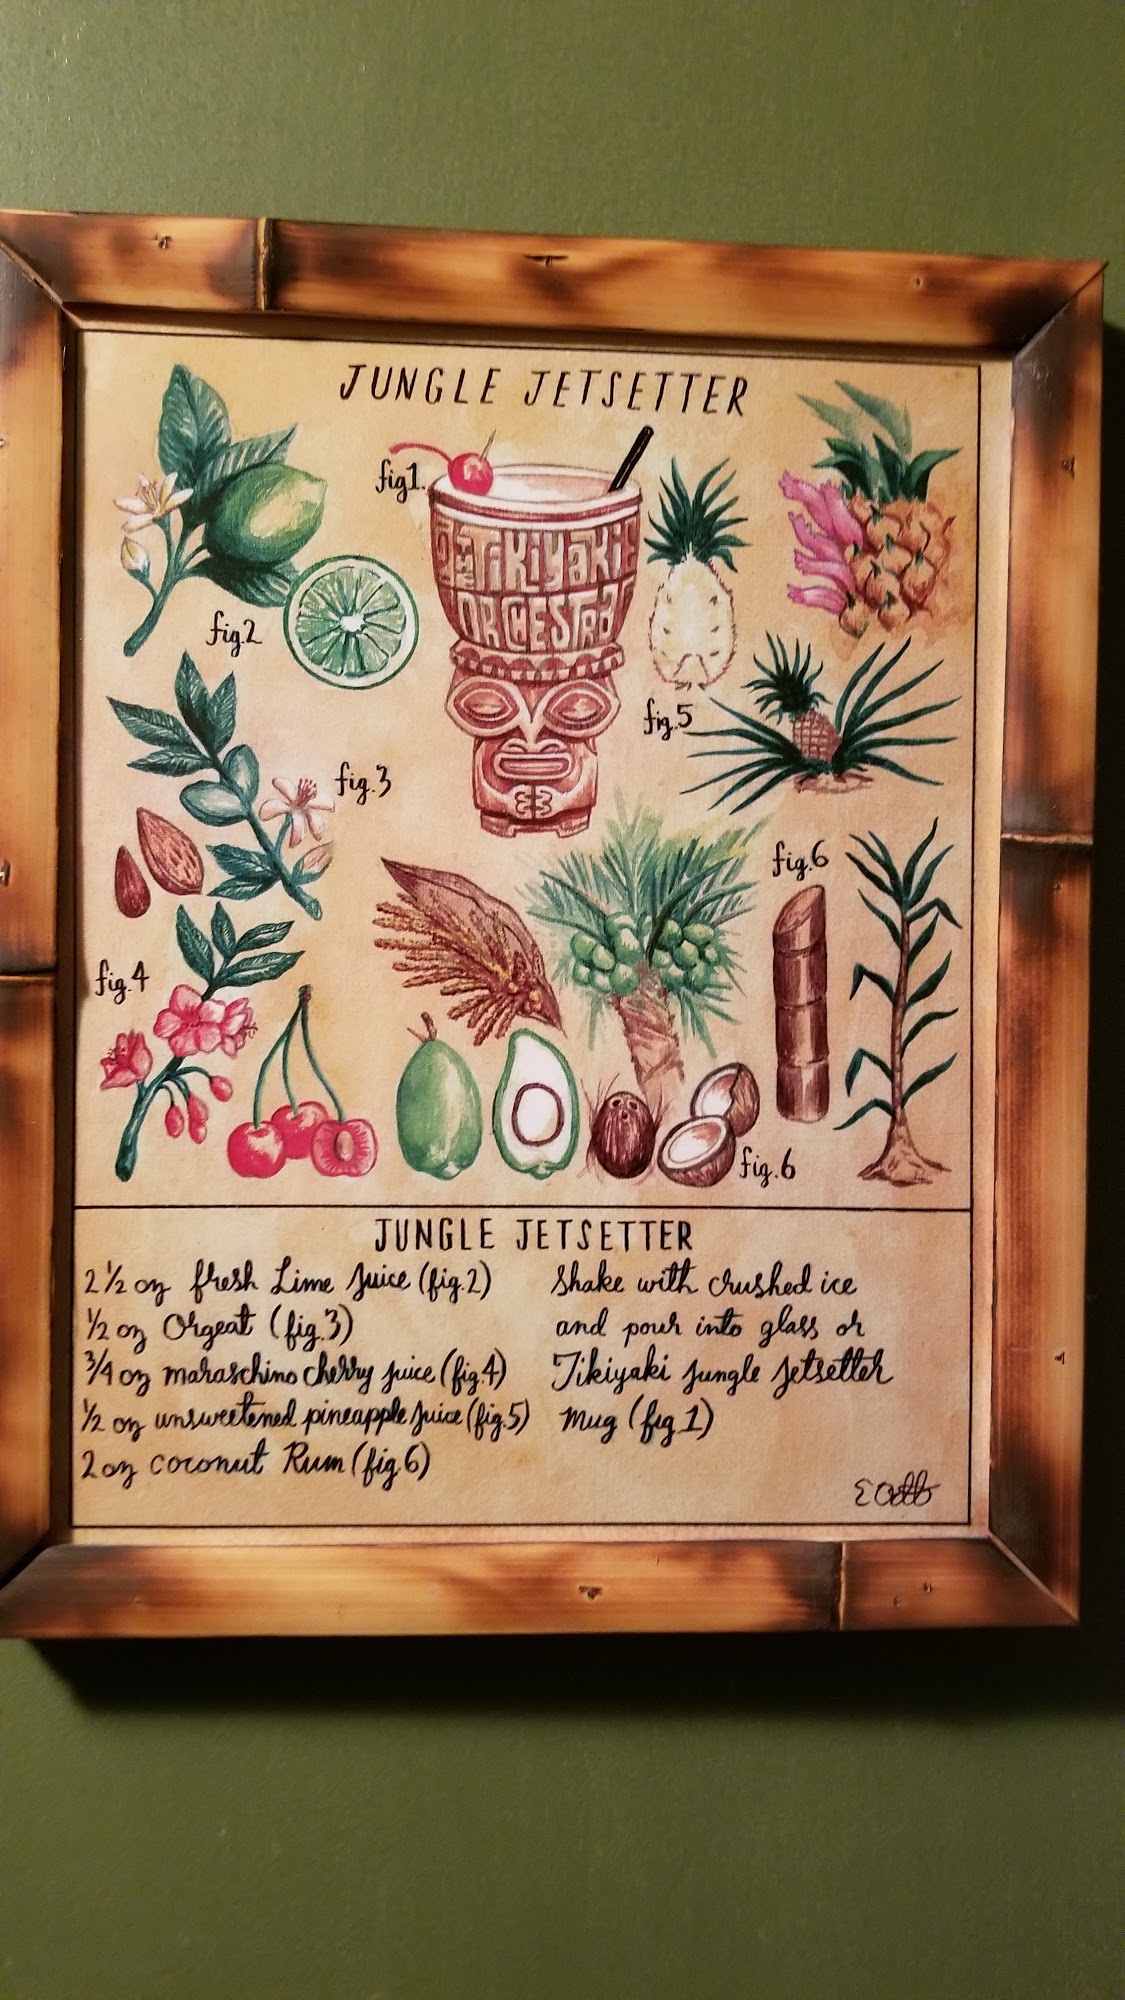 JUNGLE JETSETTER
fig1.
TiKiyaKi
ORCHESTRa
fig.2
fig.5
fig.3
fig.6
fig.4
fig.6
JUNGLE JETSETTER
2 1/2 oz fresh Lime Juice (fig.2)
1/2 oz Orgeat (fig.3)
3/4 oz maraschino cherry juice (fig.4)
1/2 oz unsweetened pineapple juice (fig.5)
2 oz coconut Rum (fig.6)
Shake with crushed ice
and pour into glass or
Tikiyaki Jungle Jetsetter
Mug (fig.1)